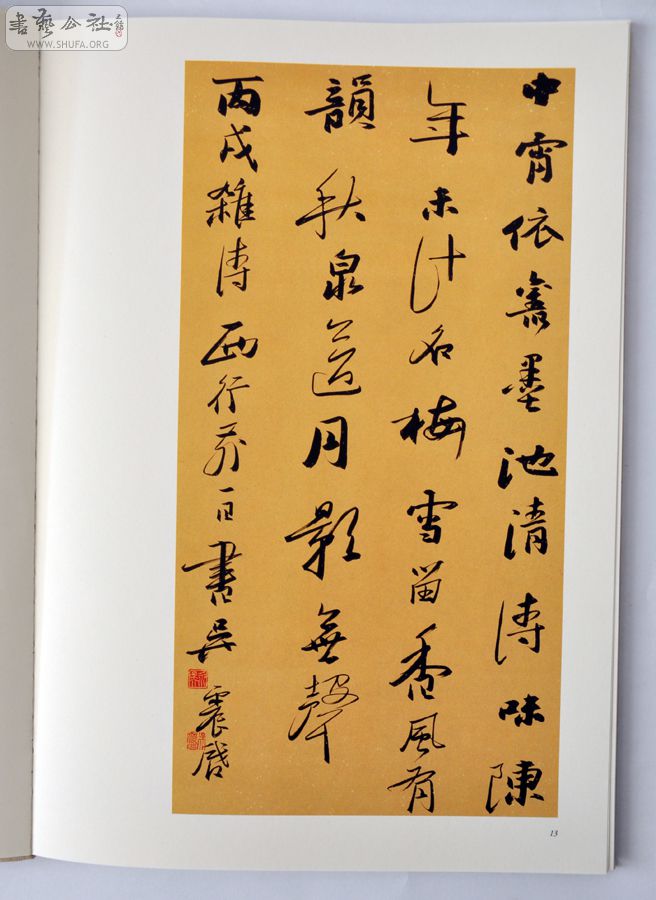 書藝公社
WWW.SHUFA.ORG
中宵依舊墨池清詩味陳
年未計名梅雪留香風有
韻秋泉邊月影無聲
丙戌雜詩西行前一日書吳
震啓
13